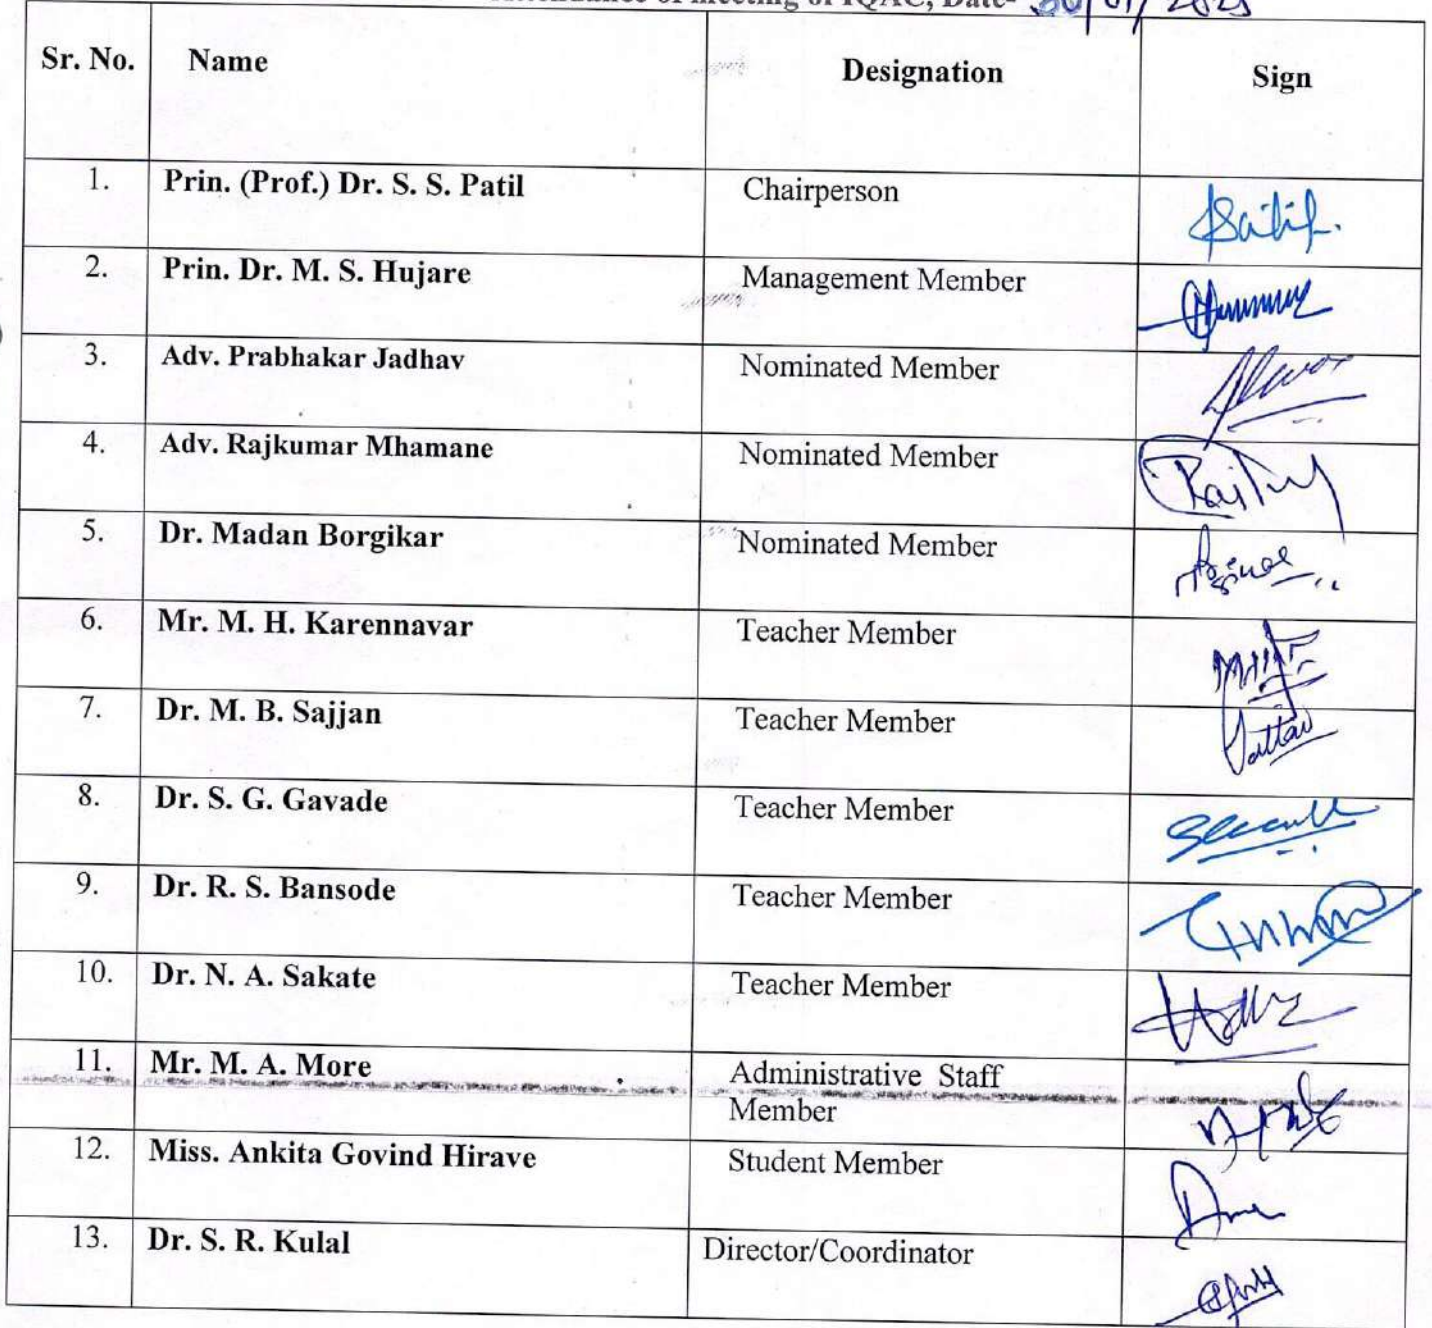 Attendance of meeting of IQAC, Date- 30/01/2025
Sr. No. Name Designation Sign
1. Prin. (Prof.) Dr. S. S. Patil Chairperson
2. Prin. Dr. M. S. Hujare Management Member
3. Adv. Prabhakar Jadhav Nominated Member
4. Adv. Rajkumar Mhamane Nominated Member
5. Dr. Madan Borgikar Nominated Member
6. Mr. M. H. Karennavar Teacher Member
7. Dr. M. B. Sajjan Teacher Member
8. Dr. S. G. Gavade Teacher Member
9. Dr. R. S. Bansode Teacher Member
10. Dr. N. A. Sakate Teacher Member
11. Mr. M. A. More Administrative Staff
Member
12. Miss. Ankita Govind Hirave Student Member
13. Dr. S. R. Kulal Director/Coordinator